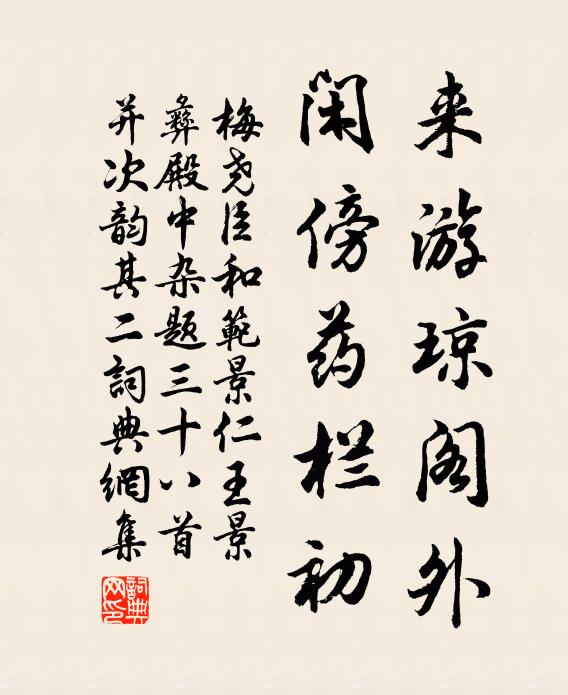 来游琼阁外
闲傍药栏初
梅尧臣和範景仁王景
彝殿中杂题三十八首
并次韵其二詞典網集
詞典